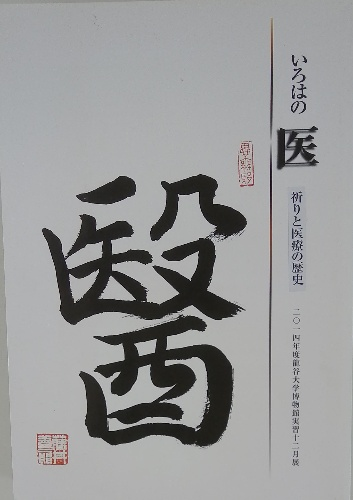 いろはの
医
祈りと医療の歴史
二〇一四年度龍谷大学博物館実習十二月展
醫